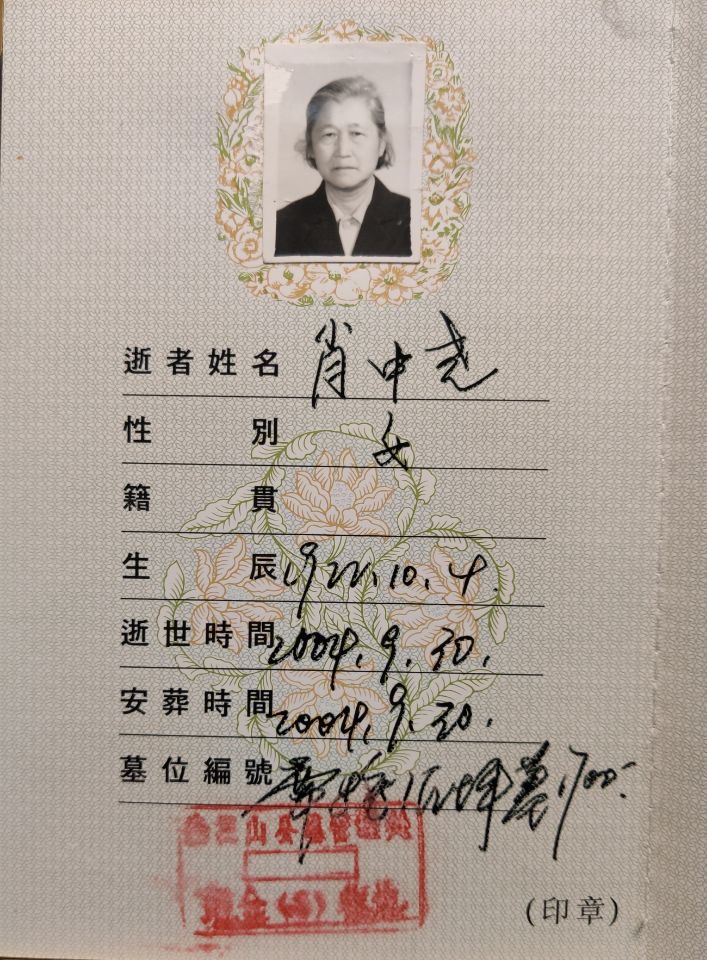 逝者姓名 肖中尧
性別 女
籍貫
生辰 1922.10.4.
逝世時間 2004.9.30.
安葬時間 2004.9.30.
墓位編號
山公墓
現金
(印章)